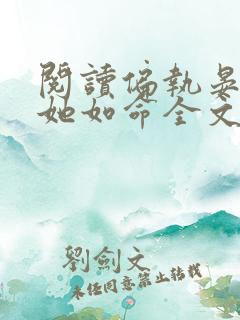 閱讀偏執晏
她如命全文
劉劍文
未經同意禁止轉載